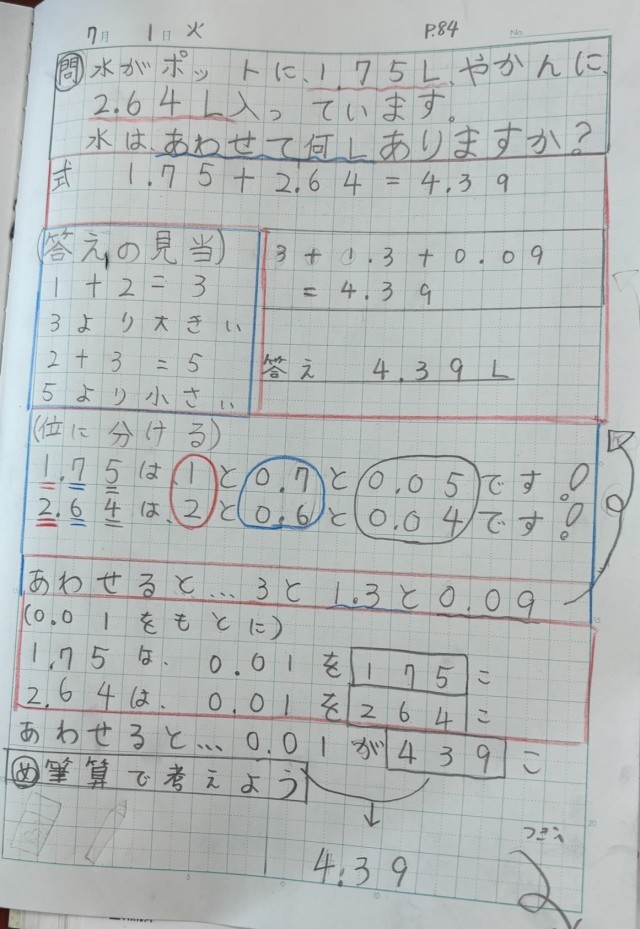 7月 1日 火 P.84 No.
問 水がポットに、1.75L、やかんに、
2.64L入っています。
水は、あわせて何Lありますか?
式 1.75+2.64=4.39
(答えの見当)
1+2=3
3より大きい
2+3=5
5より小さい
3+1.3+0.09
=4.39
答え 4.39L
(位に分ける)
1.75は、1と0.7と0.05です!
2.64は、2と0.6と0.04です!
あわせると…3と1.3と0.09
(0.01をもとに)
1.75は、0.01を175こ
2.64は、0.01を264こ
あわせると…0.01が439こ
め 筆算で考えよう
4.39
つぎへ